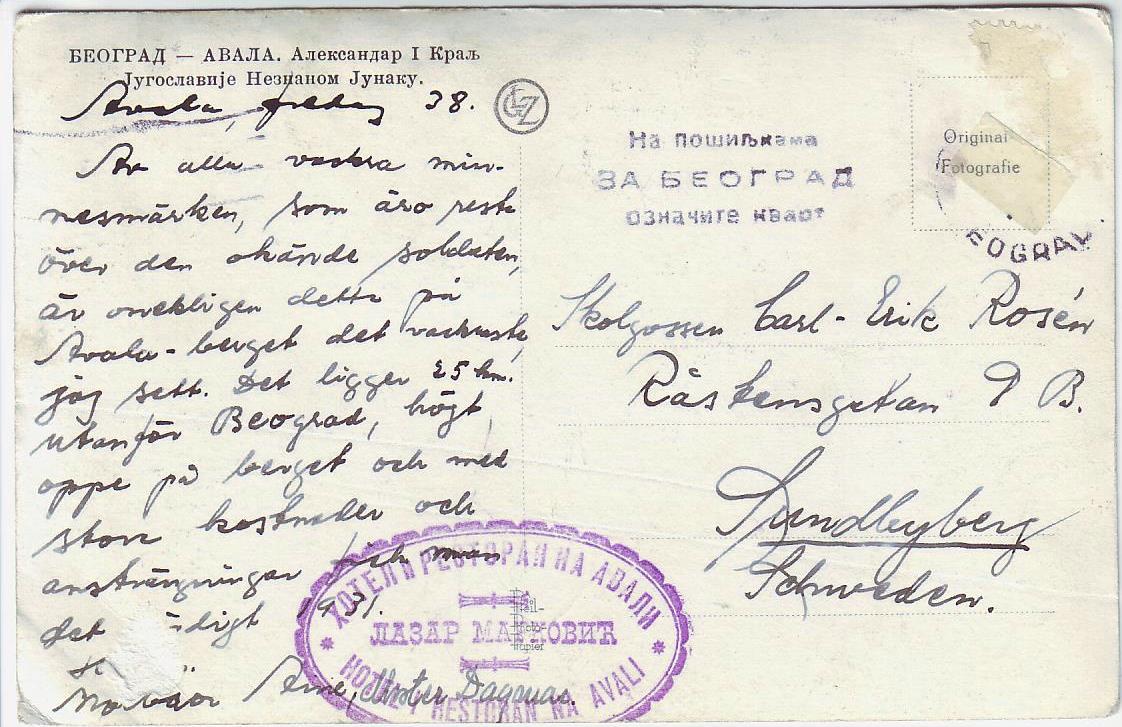 БЕОГРАД — АВАЛА. Александар I Краљ
Југославије Незнаном Јунаку.
Avala, 38.
GLZ
Av alla vackra min-
nesmärken, som äro resta
över den okände soldaten,
är onekligen detta på
Avala-berget det vackraste,
jag sett. Det ligger 25 km.
utanför Beograd, högt
oppe på berget och med
stora kostnader och
ansträngningar fick man
det 1931.
Arne, Moster Dagmar.
На пошиљкама
ЗА БЕОГРАД
означите кварт
Original
Fotografie
EOGRAD
Skolgossen Carl-Erik Rosén
Råstensgatan 9 B.
Sundbyberg
Schweden.
ХОТЕЛ И РЕСТОРАН НА АВАЛИ
ЛАЗАР МАРКОВИЋ
HOTEL I RESTORAN NA AVALI